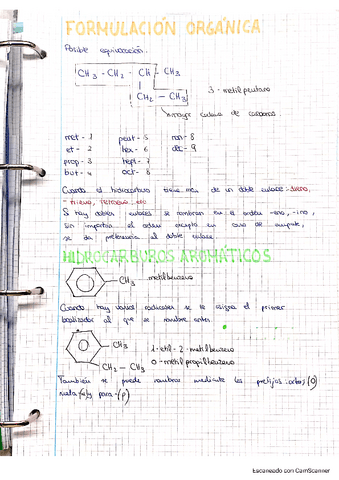 FORMULACIÓN ORGÁNICA
Posible equivocación.
CH3 - CH2 - CH - CH3
CH2 - CH3
3 - metilpentano
mayor cadena de carbonos
met - 1 pent - 5 non - 8
et - 2 hex - 6 dec - 9
prop - 3 hept - 7
but - 4 oct - 8
Cuando el hidrocarburo tiene más de un doble enlace: dieno,
- trieno, tetraeno, etc
Si hay dobles enlaces se nombran en el orden -eno, -ino,
sin importar el orden excepto en caso de empate,
se da preferencia al doble enlace
HIDROCARBUROS AROMÁTICOS
CH3 metilbenceno
Cuando hay varios radicales se le asigna el primer
localizador al que se nombre antes
CH3
CH2 - CH3
1-etil-2-metilbenceno
o-metilpropilbenceno
También se puede nombrar mediante los prefijos orto (o)
meta y para-(p)
Escaneado con CamScanner